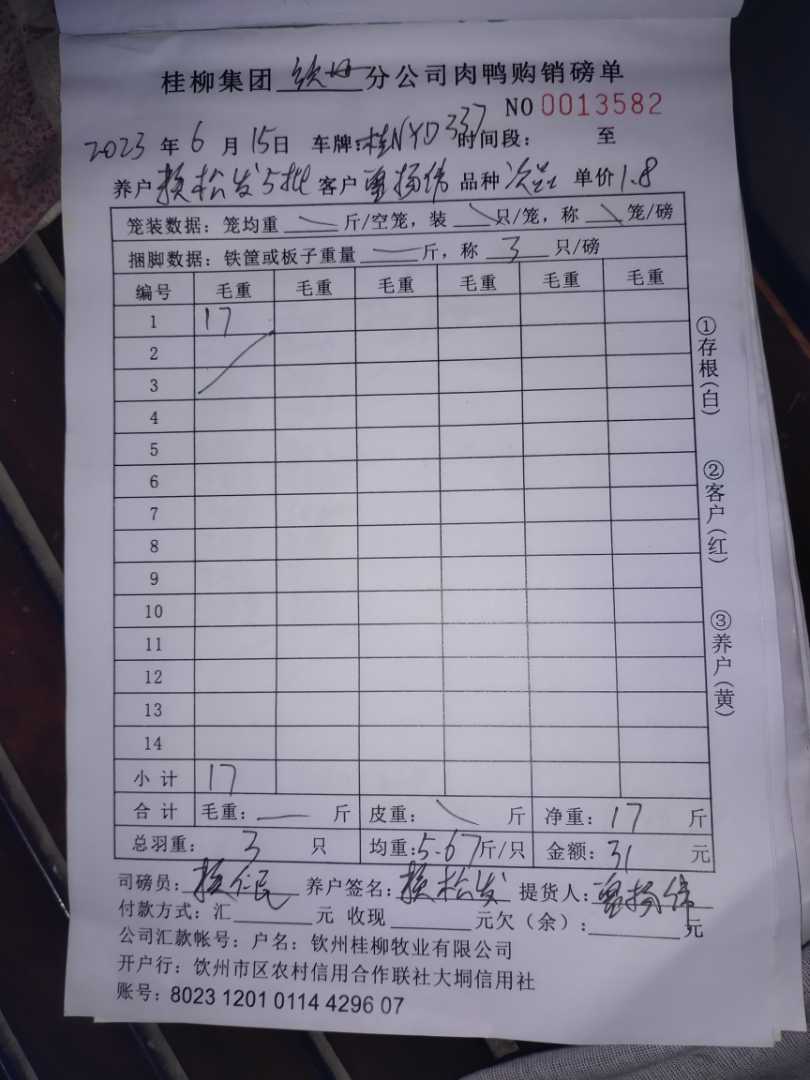 桂柳集团 钦州 分公司肉鸭购销磅单
NO 0013582
2023 年 6 月 15 日 车牌:桂NYD337 时间段: 至
养户 松发5批 客户 杨伟 品种 次 单价 1.8
笼装数据:笼均重 斤/空笼,装 只/笼,称 笼/磅
捆脚数据:铁筐或板子重量 斤,称 3 只/磅
编号 毛重 毛重 毛重 毛重 毛重 毛重
1 17
2
3
4
5
6
7
8
9
10
11
12
13
14
小 计 17
合 计 毛重:— 斤 皮重: 斤 净重:17 斤
总羽重: 3 只 均重:5.67斤/只 金额:31 元
司磅员: 仁民 养户签名: 松发 提货人: 杨伟
付款方式:汇 元 收现 元欠(余): 元
公司汇款帐号:户名:钦州桂柳牧业有限公司
开户行:钦州市区农村信用合作联社大垌信用社
账号:8023 1201 0114 4296 07
①存根(白)
②客户(红)
③养户(黄)